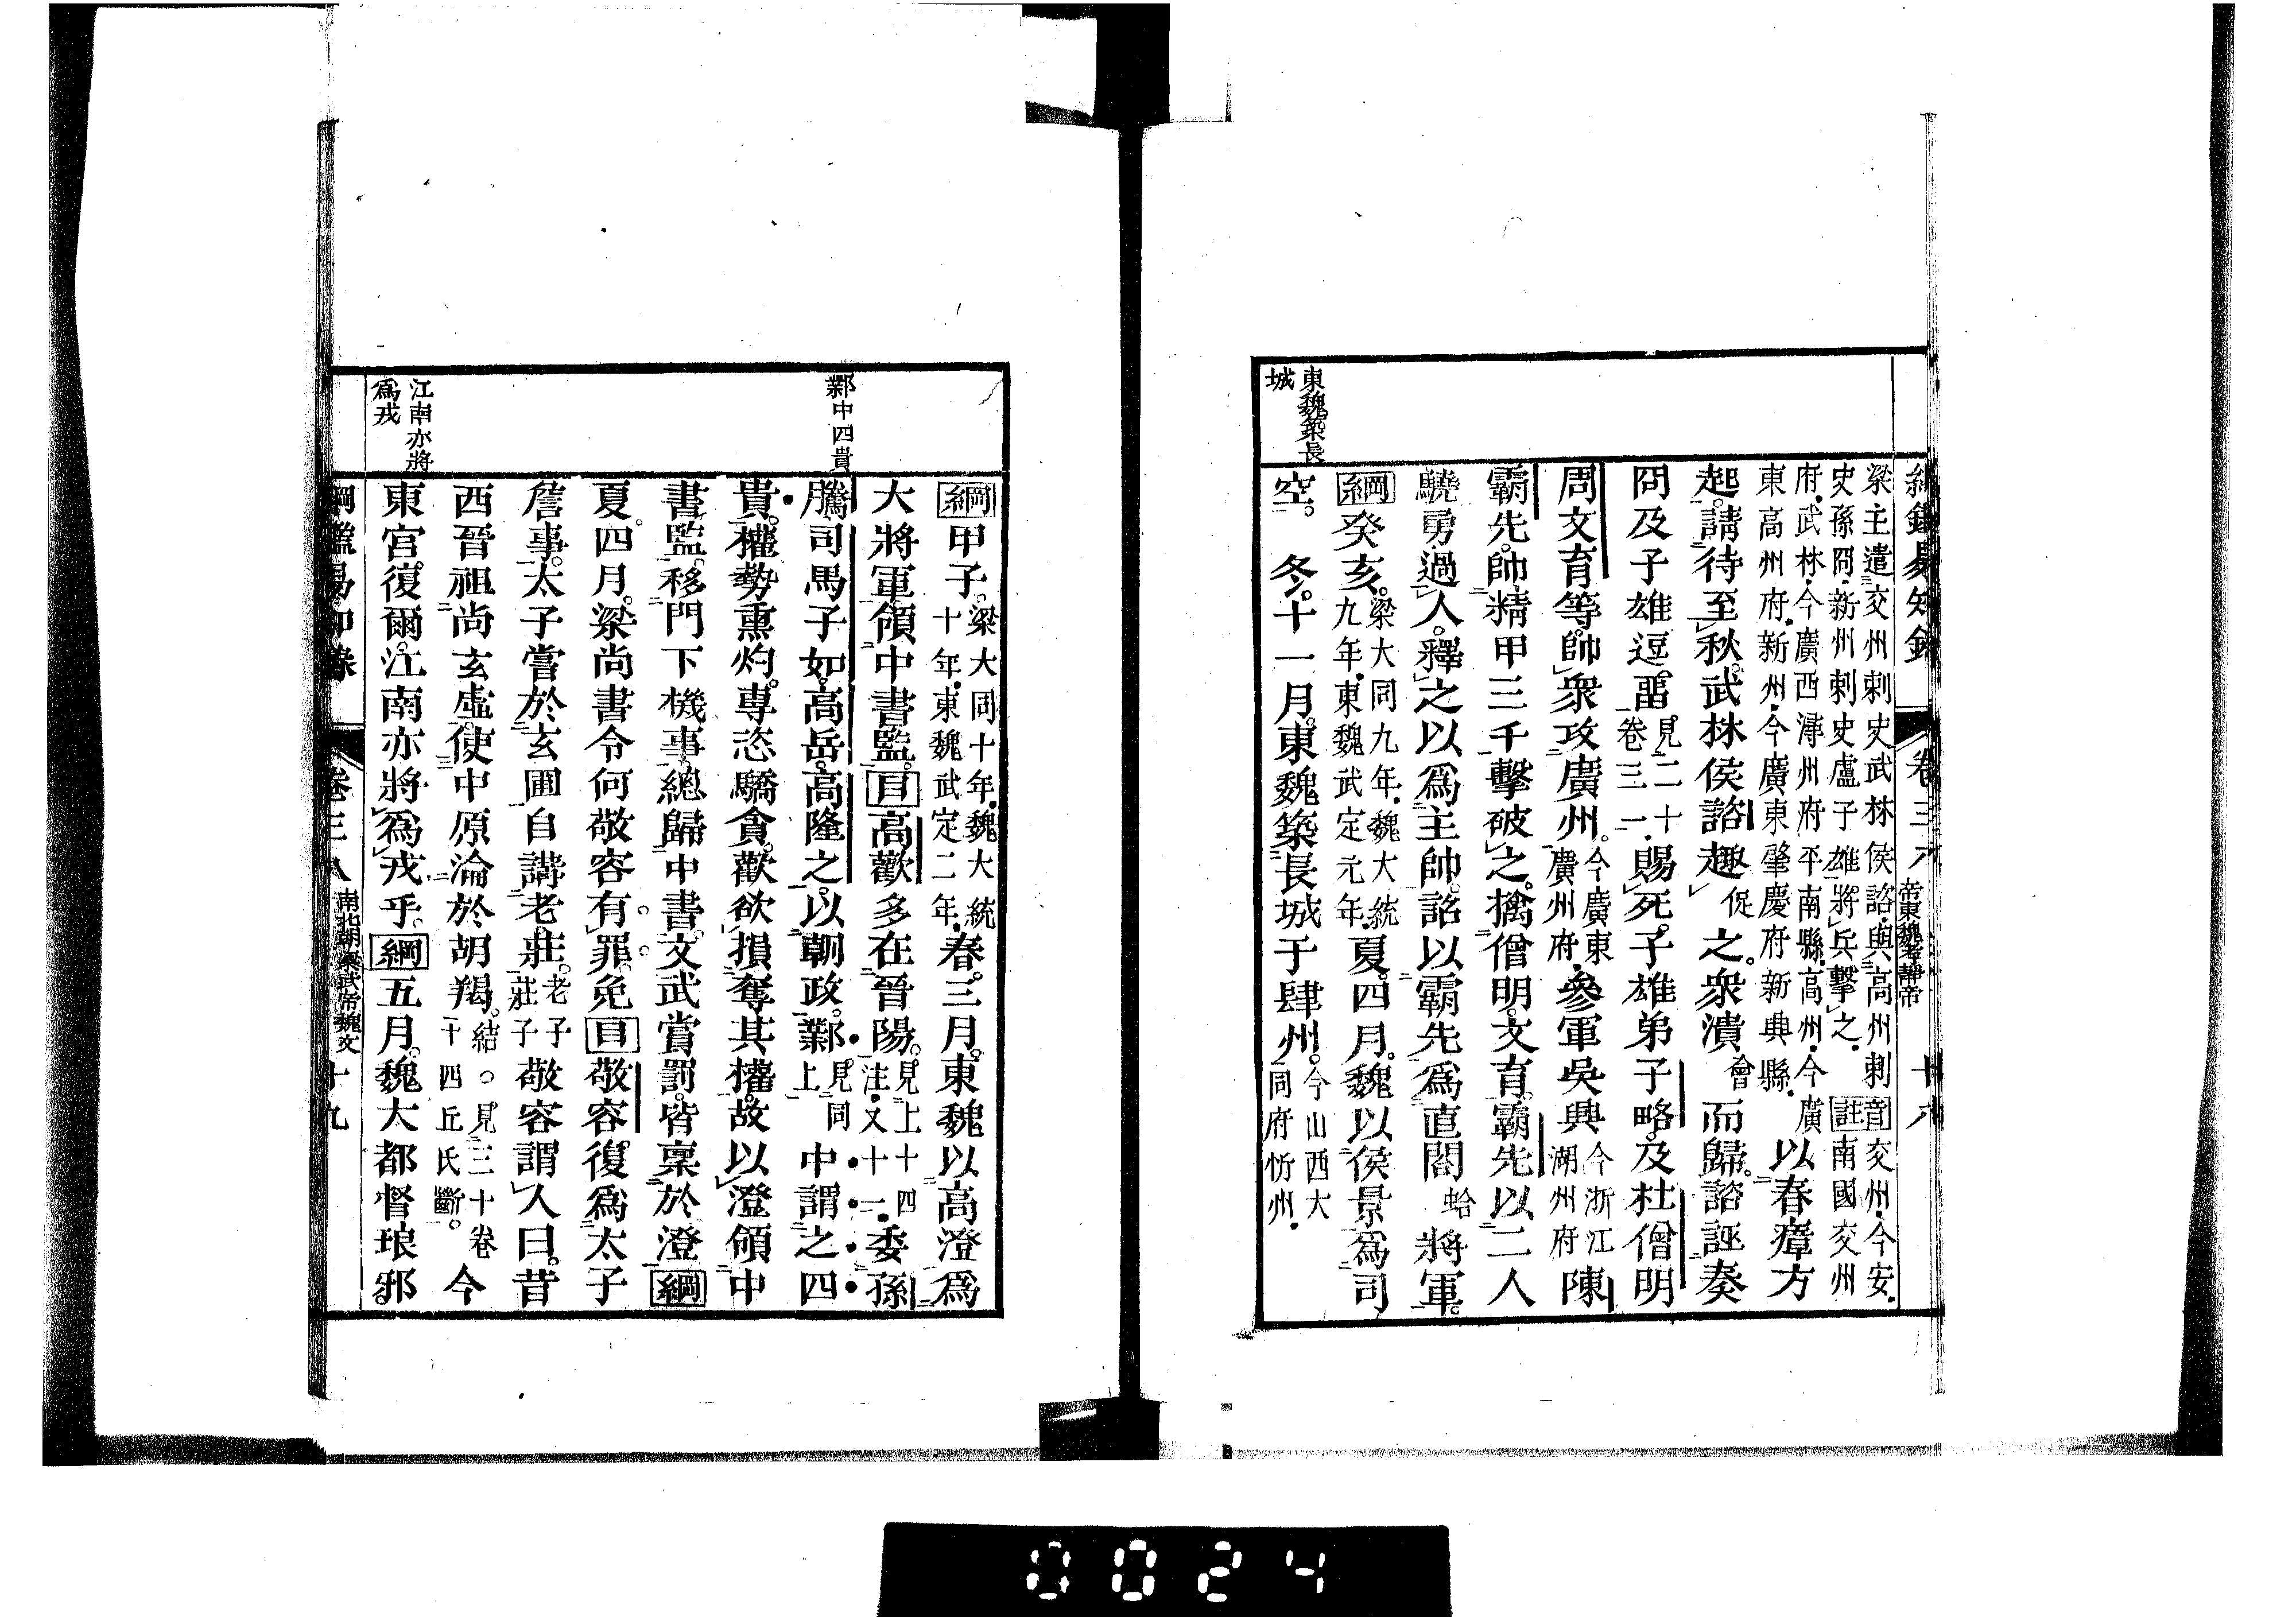 東魏築長
城
綱鑑易知錄 卷三八 帝東魏孝靜帝 十八
梁主遣交州刺史武林侯諮與高州刺
史孫冏新州刺史盧子雄將兵擊之音註交州今安
南國交州
府武林今廣西潯州府平南縣高州今廣
東高州府新州今廣東肇慶府新興縣以春瘴方
起請待至秋武林侯諮趣促之衆潰會而歸諮誣奏
冏及子雄逗畱見二十
卷三一賜死子雄弟子略及杜僧明
周文育等帥衆攻廣州今廣東
廣州府參軍吳興今浙江
湖州府陳
霸先帥精甲三千擊破之擒僧明文育霸先以二人
驍勇過人釋之以爲主帥詔以霸先爲直閤蛤將軍
綱癸亥梁大同九年魏大統
九年東魏武定元年夏四月魏以侯景爲司
空 冬十一月東魏築長城于肆州今山西大
同府忻州
鄴中四貴
江南亦將
爲戎
綱甲子梁大同十年魏大統
十年東魏武定二年春三月東魏以高澄爲
大將軍領中書監目高歡多在晉陽見上十四
注又十一委孫
騰司馬子如高岳高隆之以朝政鄴見同
上中謂之四
貴權勢熏灼專恣驕貪歡欲損奪其權故以澄領中
書監移門下機事總歸中書文武賞罰皆稟於澄綱
夏四月梁尚書令何敬容有罪免目敬容復爲太子
詹事太子嘗於玄圃自講老莊老子
莊子敬容謂人曰昔
西晉祖尚玄虛使中原淪於胡羯結見三十卷
十四丘氏斷今
東宮復爾江南亦將爲戎乎綱五月魏大都督琅邪
綱鑑易知錄 卷三八 南北朝梁武帝魏文 十九
0024